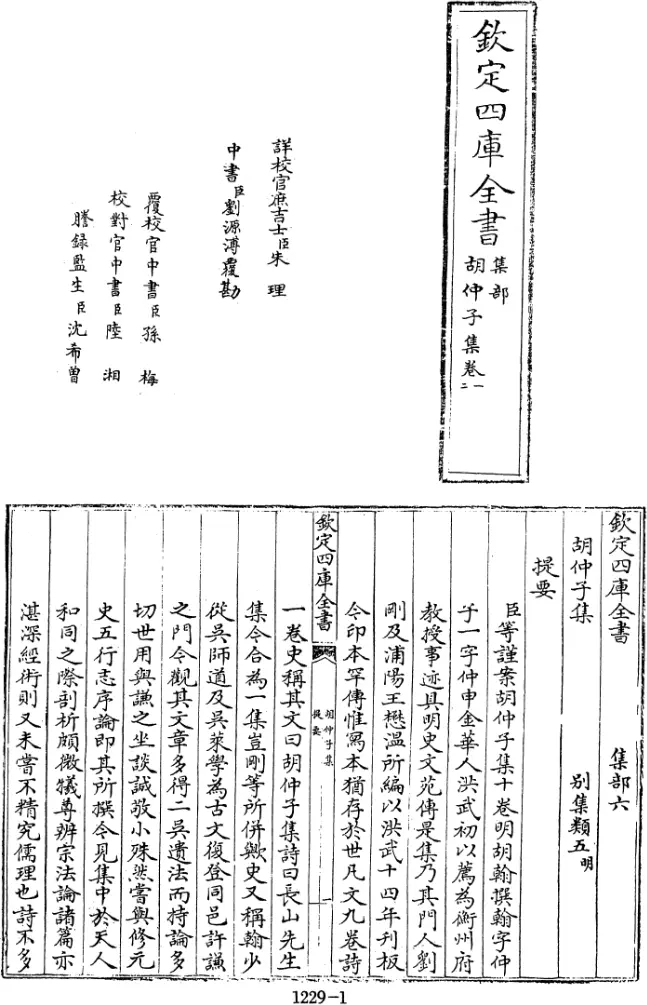 欽定四庫全書
集部
胡仲子集卷一
二
詳校官庶吉士臣朱理
中書臣劉源溥覆勘
覆校官中書臣孫梅
校對官中書臣陸湘
謄録監生臣沈希曾
欽定四庫全書 集部六
胡仲子集 别集類五明
提要
臣等謹案胡仲子集十卷明胡翰撰翰字仲
子一字仲申金華人洪武初以薦為衢州府
教授事迹具明史文苑傳是集乃其門人劉
剛及浦陽王懋温所編以洪武十四年刊板
今印本罕傳惟寫本猶存於世凡文九卷詩
欽定四庫全書
胡仲子集
提要
一
一卷史稱其文曰胡仲子集詩曰長山先生
集今合為一集豈剛等所併歟史又稱翰少
從吳師道及吳萊學為古文復登同邑許謙
之門今觀其文章多得二吳遺法而持論多
切世用與謙之坐談誠敬小殊然嘗與修元
史五行志序論即其所撰今見集中於天人
和同之際剖析頗微犧尊辨宗法論諸篇亦
湛深經術則又未嘗不精究儒理也詩不多
1229-1